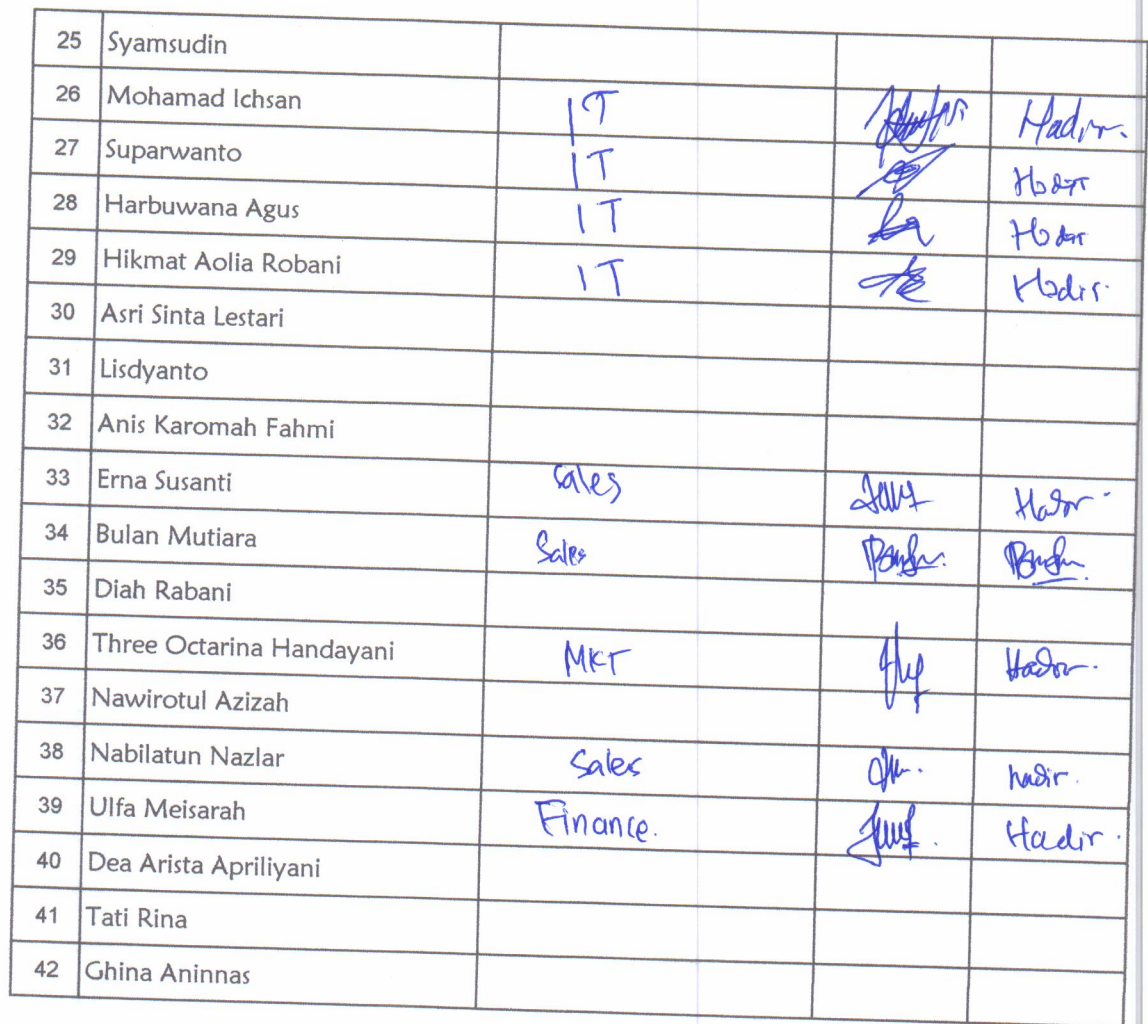 25 Syamsudin
26 Mohamad Ichsan IT Hadir.
27 Suparwanto IT Hadir
28 Harbuwana Agus IT Hadir
29 Hikmat Aolia Robani IT Hadir.
30 Asri Sinta Lestari
31 Lisdyanto
32 Anis Karomah Fahmi
33 Erna Susanti Sales Hadir.
34 Bulan Mutiara Sales
35 Diah Rabani
36 Three Octarina Handayani MKT Hadir.
37 Nawirotul Azizah
38 Nabilatun Nazlar Sales hadir.
39 Ulfa Meisarah Finance. Hadir.
40 Dea Arista Apriliyani
41 Tati Rina
42 Ghina Aninnas